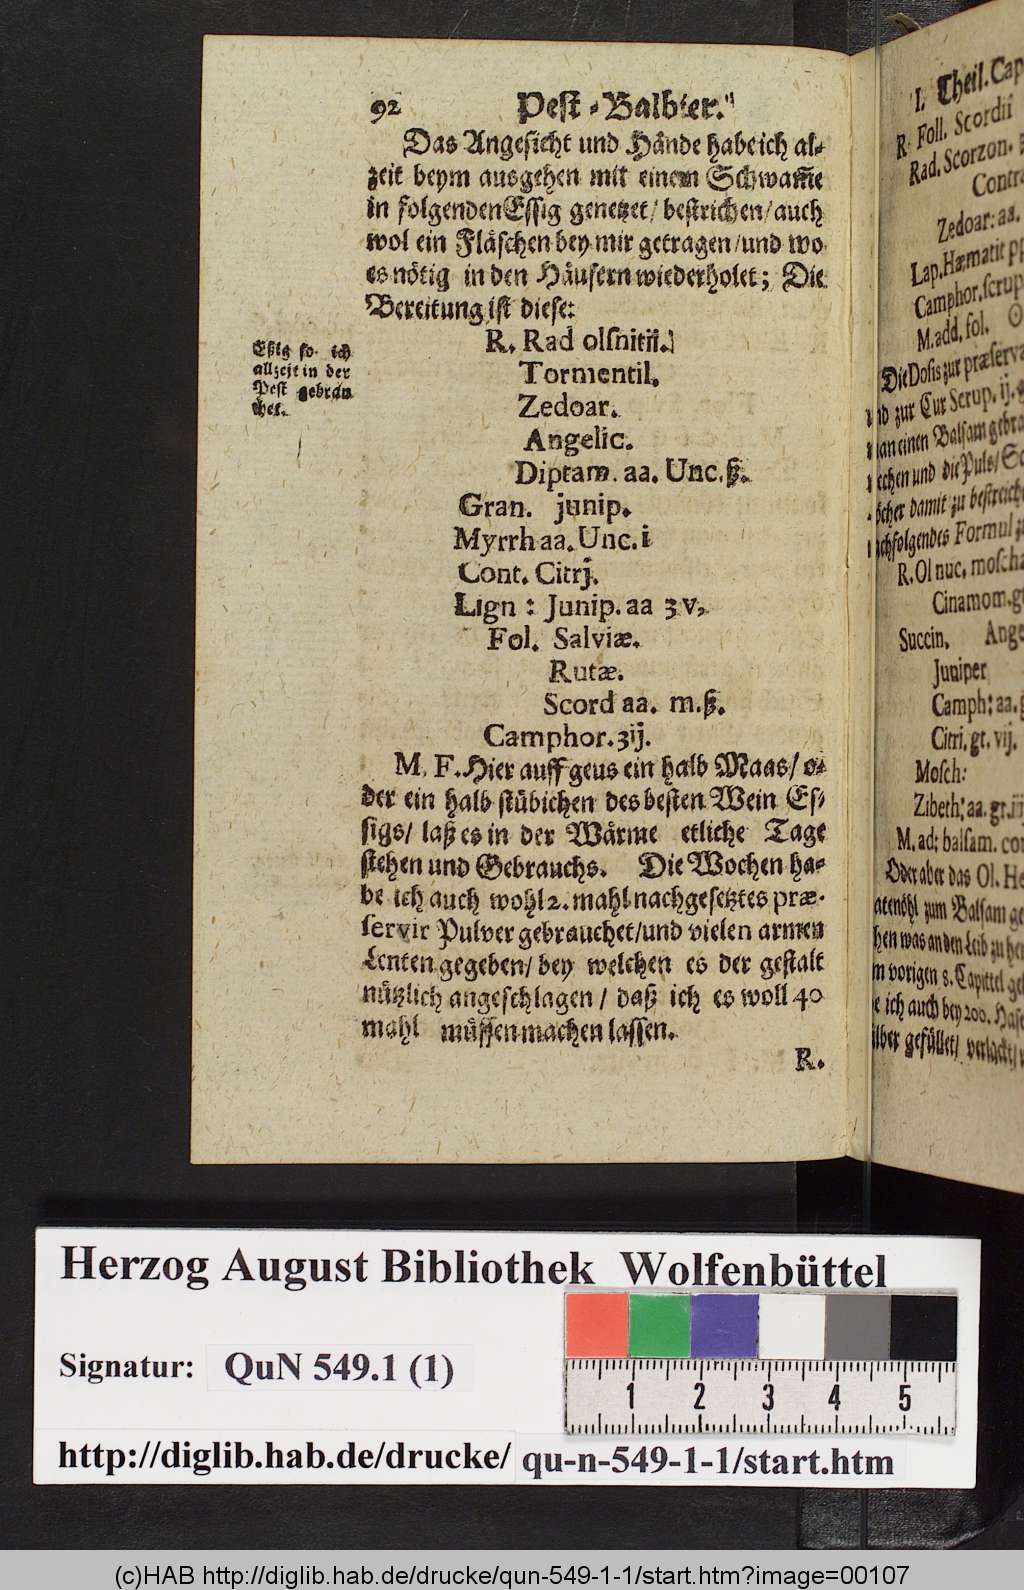 92 Pest-Balbier.
Das Angesicht und Hände habe ich al-
zeit beym ausgehen mit einem Schwam̃e
in folgenden Essig genetzet/ bestrichen/ auch
wol ein Fläschen bey mir getragen/und wo
es nötig in den Häusern wiederholet; Die
Bereitung ist diese:
Eßig so ich
allzeit in der
Pest gebrau
chet.
R. Rad olsnitii.
Tormentil.
Zedoar.
Angelic.
Diptam. aa. Unc.ß.
Gran. junip.
Myrrh aa. Unc. i
Cont. Citrj.
Lign: Junip. aa ʒ v,
Fol. Salviæ.
Rutæ.
Scord aa. m.ß.
Camphor. ʒij.
M. F. Hier auff geus ein halb Maas/ o-
der ein halb stübichen des besten Wein Es-
sigs/ laß es in der Wärme etliche Tage
stehen und Gebrauchs. Die Wochen ha-
be ich auch wohl 2. mahl nachgesetztes præ-
servir Pulver gebrauchet/und vielen armen
Leuten gegeben/ bey welchen es der gestalt
nützlich angeschlagen/ daß ich es woll 40
mahl müssen machen lassen.
R.
I. Theil. Cap
R. Foll. Scordii
Rad. Scorzon.
Contra
Zedoar: aa.
Lap. Hæmatit pp
Camphor. scrup
M. add. sol.
Die Dosis zur præserva
und zur Cur Scrup. ij.
man einen Balsam gebra
riechen und die Puls/ Sc
löcher damit zu bestreiche
nachfolgendes Formul
R. Ol nuc. moscha
Cinamom. gt
Succin. Ange
Juniper
Camph: aa.
Citri. gt. vij.
Mosch:
Zibeth: aa. gr. ij
M. ad: balsam. cor
Oder aber das Ol. He
atenöhl zum Balsam ge
hen was an den Leib zu her
m vorigen 8. Capittel ge
e ich auch bey 200. Hase
ilber gefüllet/
Herzog August Bibliothek Wolfenbüttel
Signatur: QuN 549.1 (1)
1 2 3 4 5
http://diglib.hab.de/drucke/ qu-n-549-1-1/start.htm
(c)HAB http://diglib.hab.de/drucke/qun-549-1-1/start.htm?image=00107